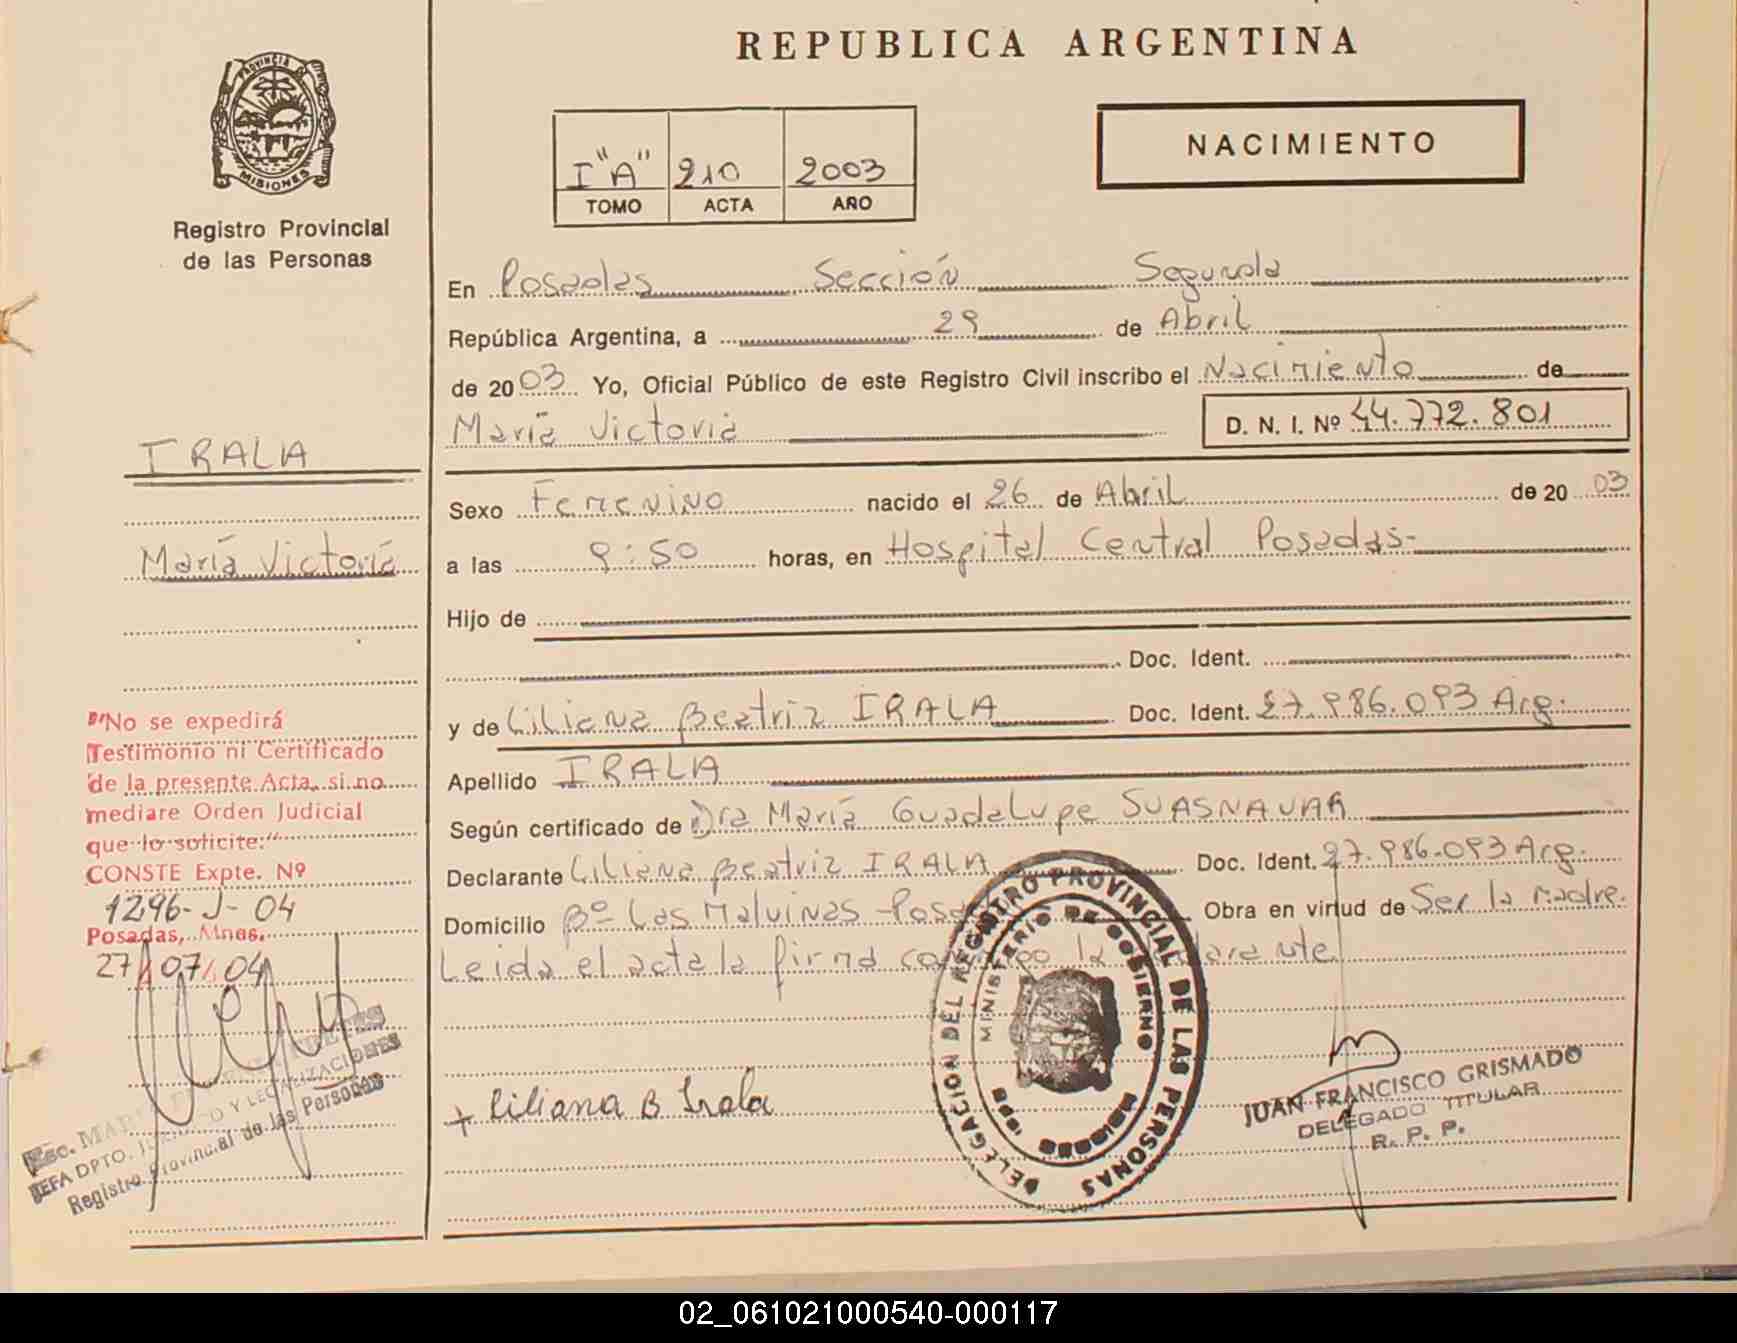 REPUBLICA ARGENTINA
PROVINCIA D
MISIONES
Registro Provincial
de las Personas
NACIMIENTO
I "A" 210 2003
TOMO ACTA AÑO
En Posadas Sección Segunda
República Argentina, a 29 de Abril
de 2003 Yo, Oficial Público de este Registro Civil inscribo el Nacimiento de
María Victoria D. N. I. Nº 44.772.801
IRALA
María Victoria
Sexo Femenino nacido el 26 de Abril de 2003
a las 9:50 horas, en Hospital Central Posadas-
Hijo de
Doc. Ident.
y de Liliana Beatriz IRALA Doc. Ident. 27.986.093 Arg.
Apellido IRALA
Según certificado de Dra María Guadalupe SUASNAVAR
Declarante Liliana Beatriz IRALA Doc. Ident. 27.986.093 Arg.
Domicilio Bº Las Malvinas - Posadas Obra en virtud de Ser la madre.
Leida el acta la firma conmigo la declarante
"No se expedirá
Testimonio ni Certificado
de la presente Acta, si no
mediare Orden Judicial
que lo solicite:"
CONSTE Expte. Nº
1296-J-04
Posadas, Mnes.
27/07/04
Esc.
JEFA DPTO. JURIDICO Y LEGALIZACIONES
Registro Provincial de las Personas
+ Liliana B Irala
DELEGACION DEL REGISTRO PROVINCIAL DE LAS PERSONAS
MINISTERIO DE GOBIERNO
MISIONES
JUAN FRANCISCO GRISMADO
DELEGADO TITULAR
R. P. P.
02_061021000540-000117